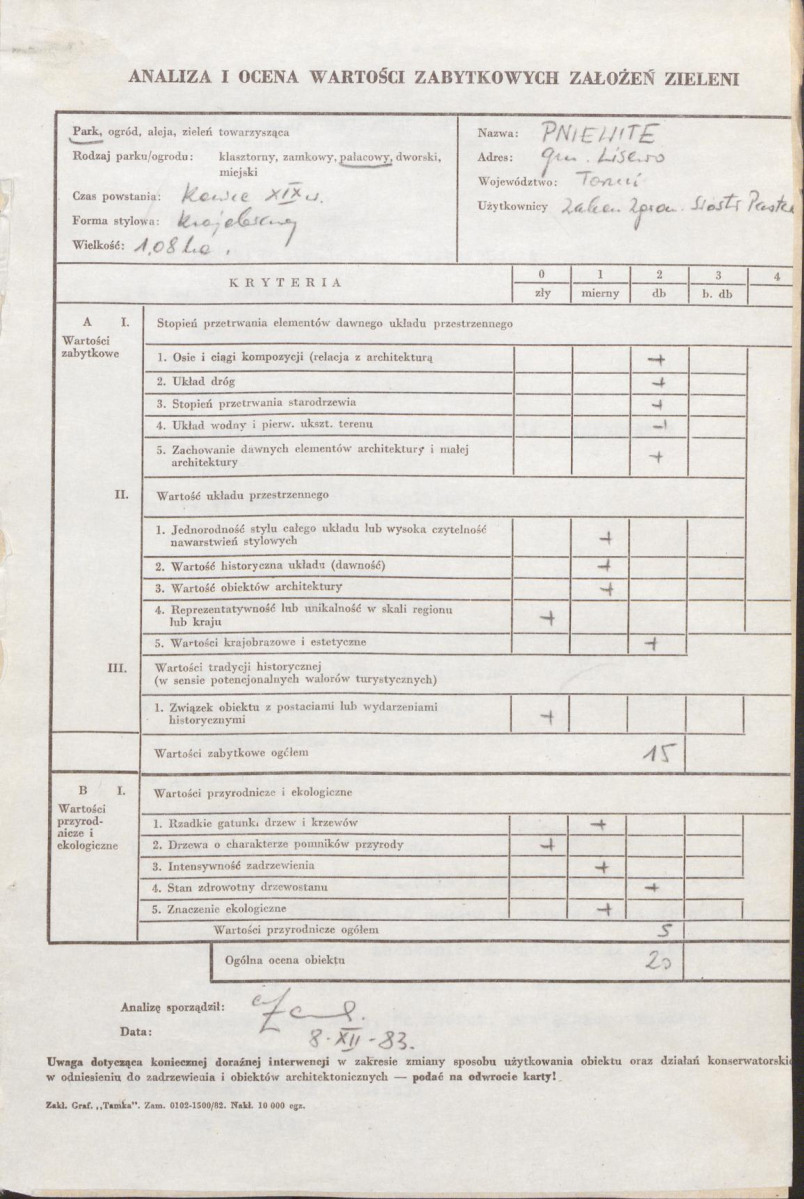 ANALIZA I OCENA WARTOŚCI ZABYTKOWYCH ZAŁOŻEŃ ZIELENI
Park, ogród, aleja, zieleń towarzysząca
Rodzaj parku/ogrodu: klasztorny, zamkowy, pałacowy, dworski,
miejski
Czas powstania: Koniec XIX w.
Forma stylowa: krajobrazowy
Wielkość: 1,08 ha.
Nazwa: PNIEWITE
Adres: gm. Lisewo
Województwo: Toruń
Użytkownicy Zakon Zgrom. Sióstr Paster
KRYTERIA
0 1 2 3 4
zły mierny db b. db
A I. Stopień przetrwania elementów dawnego układu przestrzennego
Wartości
zabytkowe
1. Osie i ciągi kompozycji (relacja z architekturą +
2. Układ dróg +
3. Stopień przetrwania starodrzewia +
4. Układ wodny i pierw. ukszt. terenu +
5. Zachowanie dawnych elementów architektury i małej
architektury +
II. Wartość układu przestrzennego
1. Jednorodność stylu całego układu lub wysoka czytelność
nawarstwień stylowych +
2. Wartość historyczna układu (dawność) +
3. Wartość obiektów architektury +
4. Reprezentatywność lub unikalność w skali regionu
lub kraju +
5. Wartości krajobrazowe i estetyczne +
III. Wartości tradycji historycznej
(w sensie potencjonalnych walorów turystycznych)
1. Związek obiektu z postaciami lub wydarzeniami
historycznymi +
Wartości zabytkowe ogółem 15
B I. Wartości przyrodnicze i ekologiczne
Wartości
przyrod-
nicze i
ekologiczne
1. Rzadkie gatunki drzew i krzewów +
2. Drzewa o charakterze pomników przyrody +
3. Intensywność zadrzewienia +
4. Stan zdrowotny drzewostanu +
5. Znaczenie ekologiczne +
Wartości przyrodnicze ogółem 5
Ogólna ocena obiektu 20
Analizę sporządził:
Data: 8.XII-83.
Uwaga dotycząca koniecznej doraźnej interwencji w zakresie zmiany sposobu użytkowania obiektu oraz działań konserwatorski
w odniesieniu do zadrzewienia i obiektów architektonicznych — podać na odwrocie karty!
Zakł. Graf. ,,Tamka". Zam. 0102-1500/82. Nakł. 10 000 egz.